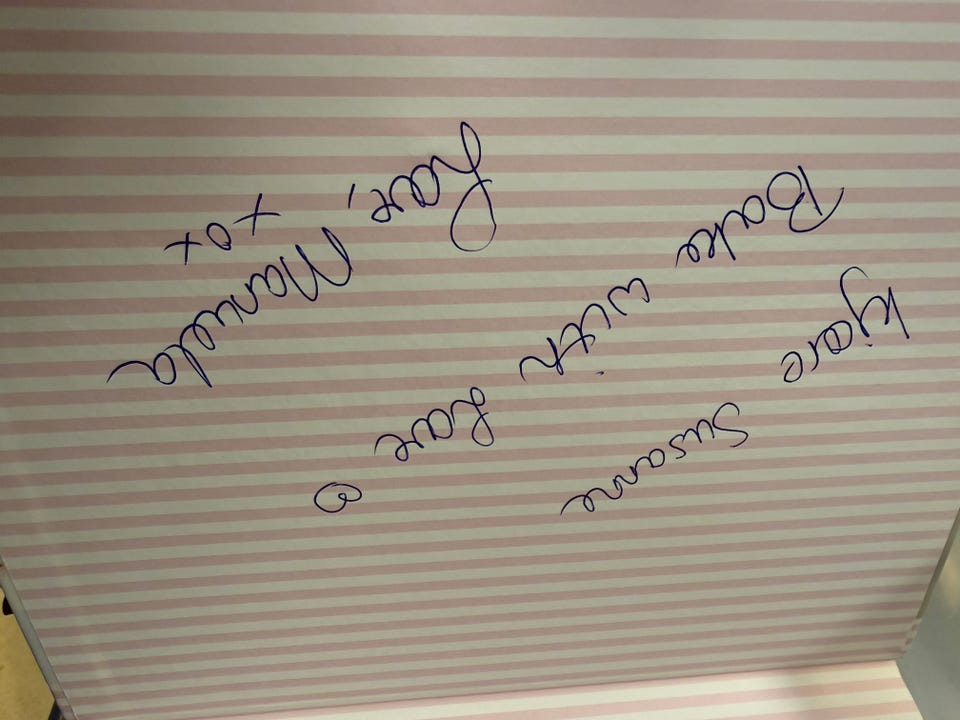 kjære Susanne
Bake with Love
Love,
Manuela
xox